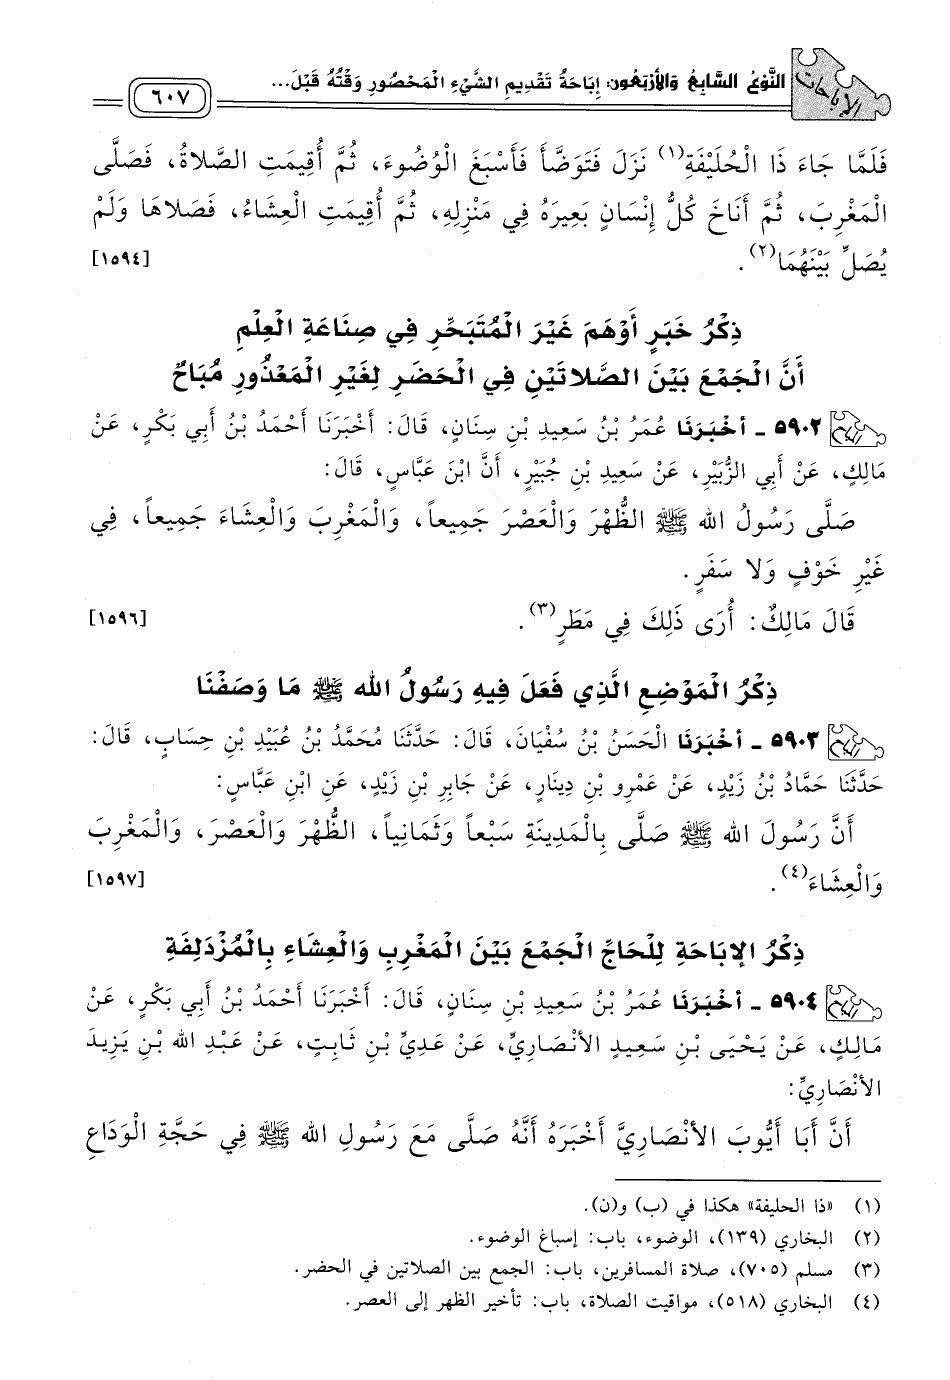 الإباحات
النَّوْعُ السَّابِعُ وَالأَرْبَعُون: إبَاحَةُ تَقْدِيمِ الشَّيْءِ الْمَحْصُورِ وَقْتُهُ قَبْلَ...
٦٠٧
فَلَمَّا جَاءَ ذَا الْحُلَيْفَةِ(١) نَزَلَ فَتَوَضَّأَ فَأَسْبَغَ الْوُضُوءَ، ثُمَّ أُقِيمَتِ الصَّلاةُ، فَصَلَّى
الْمَغْرِبَ، ثُمَّ أَنَاخَ كُلُّ إِنْسَانٍ بَعِيرَهُ فِي مَنْزِلِهِ، ثُمَّ أُقِيمَتِ الْعِشَاءُ، فَصَلاهَا وَلَمْ
يُصَلِّ بَيْنَهُمَا(٢). [١٥٩٤]
ذِكْرُ خَبَرٍ أَوْهَمَ غَيْرَ الْمُتَبَحِّرِ فِي صِنَاعَةِ الْعِلْمِ
أَنَّ الْجَمْعَ بَيْنَ الصَّلاتَيْنِ فِي الْحَضَرِ لِغَيْرِ الْمَعْذُورِ مُبَاحٌ
٥٩٠٢ ـ أخْبَرَنَا عُمَرُ بْنُ سَعِيدِ بْنِ سِنَانٍ، قَالَ: أَخْبَرَنَا أَحْمَدُ بْنُ أَبِي بَكْرٍ، عَنْ
مَالِكٍ، عَنْ أَبِي الزُّبَيْرِ، عَنْ سَعِيدِ بْنِ جُبَيْرٍ، أَنَّ ابْنَ عَبَّاسٍ، قَالَ:
صَلَّى رَسُولُ الله ﷺ الظُّهْرَ وَالْعَصْرَ جَمِيعاً، وَالْمَغْرِبَ وَالْعِشَاءَ جَمِيعاً، فِي
غَيْرِ خَوْفٍ وَلا سَفَرٍ.
قَالَ مَالِكٌ: أُرَى ذَلِكَ فِي مَطَرٍ(٣). [١٥٩٦]
ذِكْرُ الْمَوْضِعِ الَّذِي فَعَلَ فِيهِ رَسُولُ الله ﷺ مَا وَصَفْنَا
٥٩٠٣ ـ أخْبَرَنَا الْحَسَنُ بْنُ سُفْيَانَ، قَالَ: حَدَّثَنَا مُحَمَّدُ بْنُ عُبَيْدِ بْنِ حِسَابٍ، قَالَ:
حَدَّثَنَا حَمَّادُ بْنُ زَيْدٍ، عَنْ عَمْرِو بْنِ دِينَارٍ، عَنْ جَابِرِ بْنِ زَيْدٍ، عَنِ ابْنِ عَبَّاسٍ:
أَنَّ رَسُولَ الله ﷺ صَلَّى بِالْمَدِينَةِ سَبْعاً وَثَمَانِياً، الظُّهْرَ وَالْعَصْرَ، وَالْمَغْرِبَ
وَالْعِشَاءَ(٤). [١٥٩٧]
ذِكْرُ الإِبَاحَةِ لِلْحَاجِّ الْجَمْعَ بَيْنَ الْمَغْرِبِ وَالْعِشَاءِ بِالْمُزْدَلِفَةِ
٥٩٠٤ ـ أخْبَرَنَا عُمَرُ بْنُ سَعِيدِ بْنِ سِنَانٍ، قَالَ: أَخْبَرَنَا أَحْمَدُ بْنُ أَبِي بَكْرٍ، عَنْ
مَالِكٍ، عَنْ يَحْيَى بْنِ سَعِيدٍ الأَنْصَارِيِّ، عَنْ عَدِيِّ بْنِ ثَابِتٍ، عَنْ عَبْدِ الله بْنِ يَزِيدَ
الأَنْصَارِيِّ:
أَنَّ أَبَا أَيُّوبَ الأَنْصَارِيَّ أَخْبَرَهُ أَنَّهُ صَلَّى مَعَ رَسُولِ الله ﷺ فِي حَجَّةِ الْوَدَاعِ
(١) «ذا الحليفة» هكذا في (ب) و(ن).
(٢) البخاري (١٣٩)، الوضوء، باب: إسباغ الوضوء.
(٣) مسلم (٧٠٥)، صلاة المسافرين، باب: الجمع بين الصلاتين في الحضر.
(٤) البخاري (٥١٨)، مواقيت الصلاة، باب: تأخير الظهر إلى العصر.